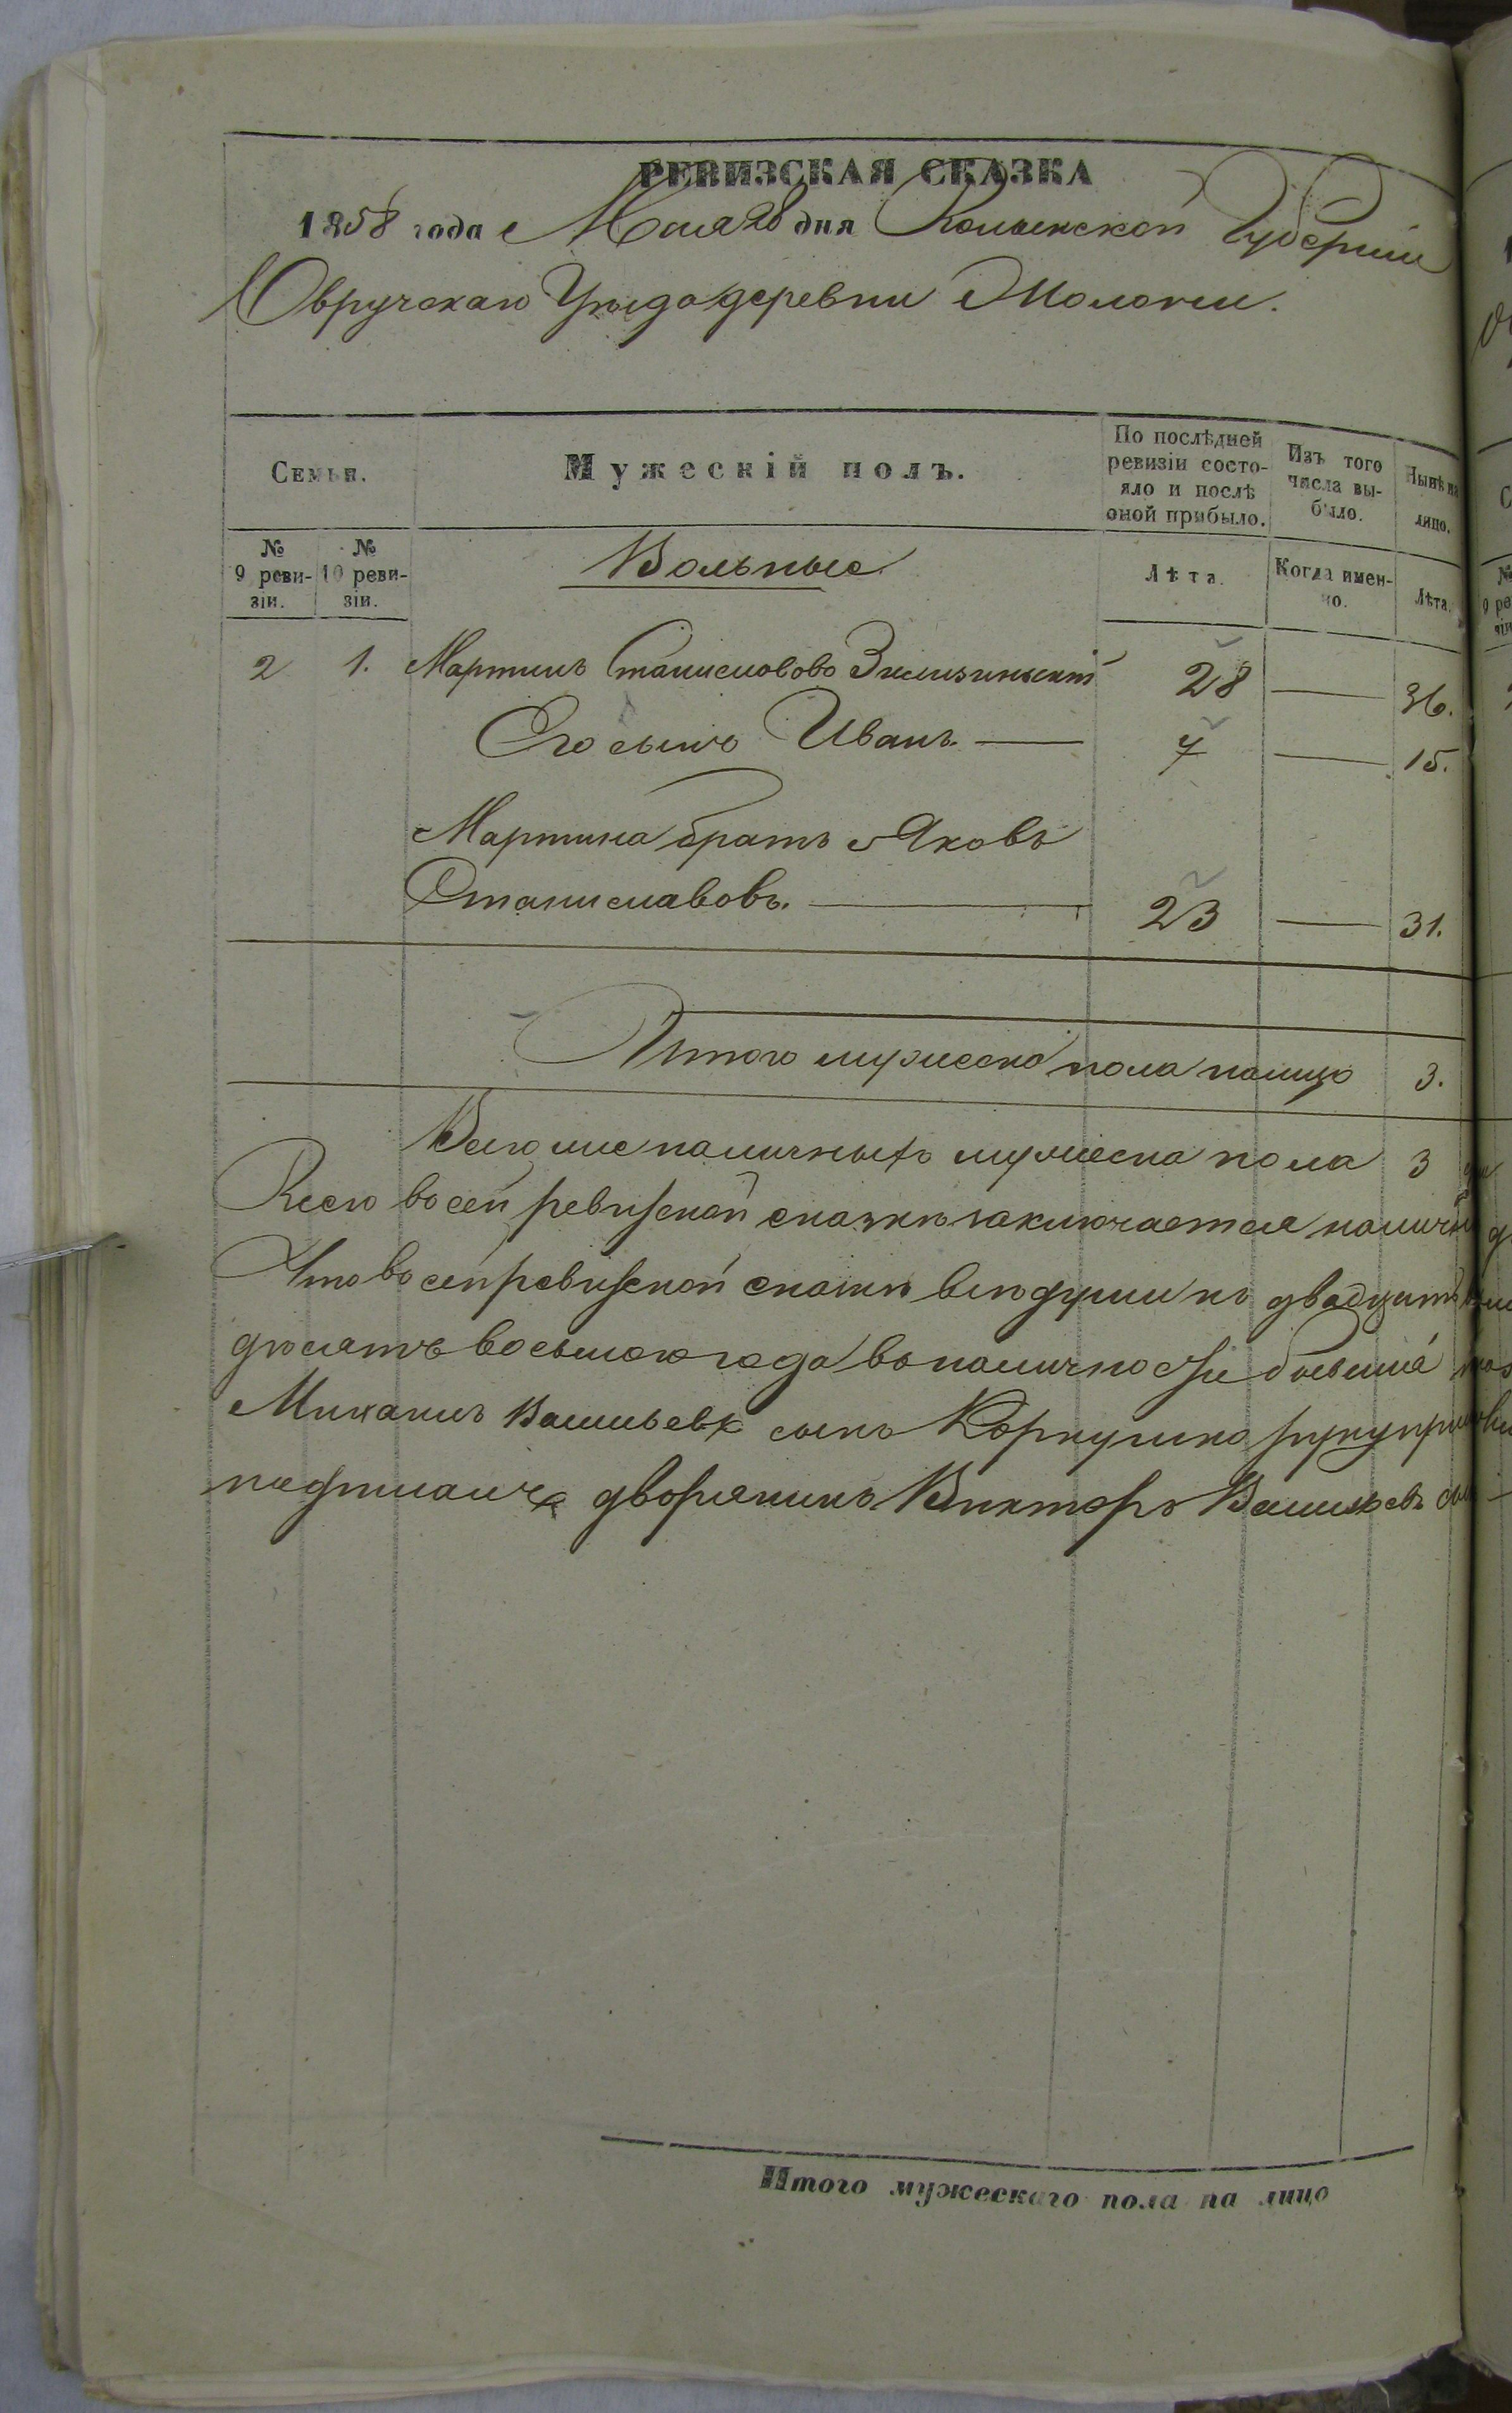 РЕВИЗСКАЯ СКАЗКА
1858 года Мая 28 дня Волынской Губернии
Овручскаго Уѣзда деревни Молочки.
Семьи.
Мужескій полъ.
По послѣдней ревизіи состо-
яло и послѣ
оной прибыло.
Изъ того
числа вы-
было.
Нынѣ на
лицо.
№ 9 реви-
зіи.
№ 10 реви-
зіи.
Вольные
Лѣта.
Когда имен-
но.
Лѣта.
2 1. Мартинъ Станиславовъ 28 — 36.
Его сынъ Иванъ. — 7 — 15.
Мартина братъ Яковъ
Станиславовъ. — 23 — 31.
Итого мужеска пола налицо 3.
Всего же наличныхъ мужеска пола 3
Всего во сей ревизской сказкѣ заключается
Что во сей ревизской сказкѣ всѣ души къ двадцать
десятъ восьмого года въ наличности бывшія
Михаилъ Васильевъ сынъ
дворянинъ Викторъ Васильевъ
Итого мужескаго пола на лицо